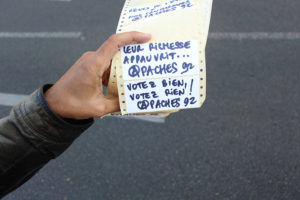 LEUR RICHESSE
APPAUVRIT...
@PACHES 92
VOTEZ BIEN,
VOTEZ RIEN!
@PACHES 92